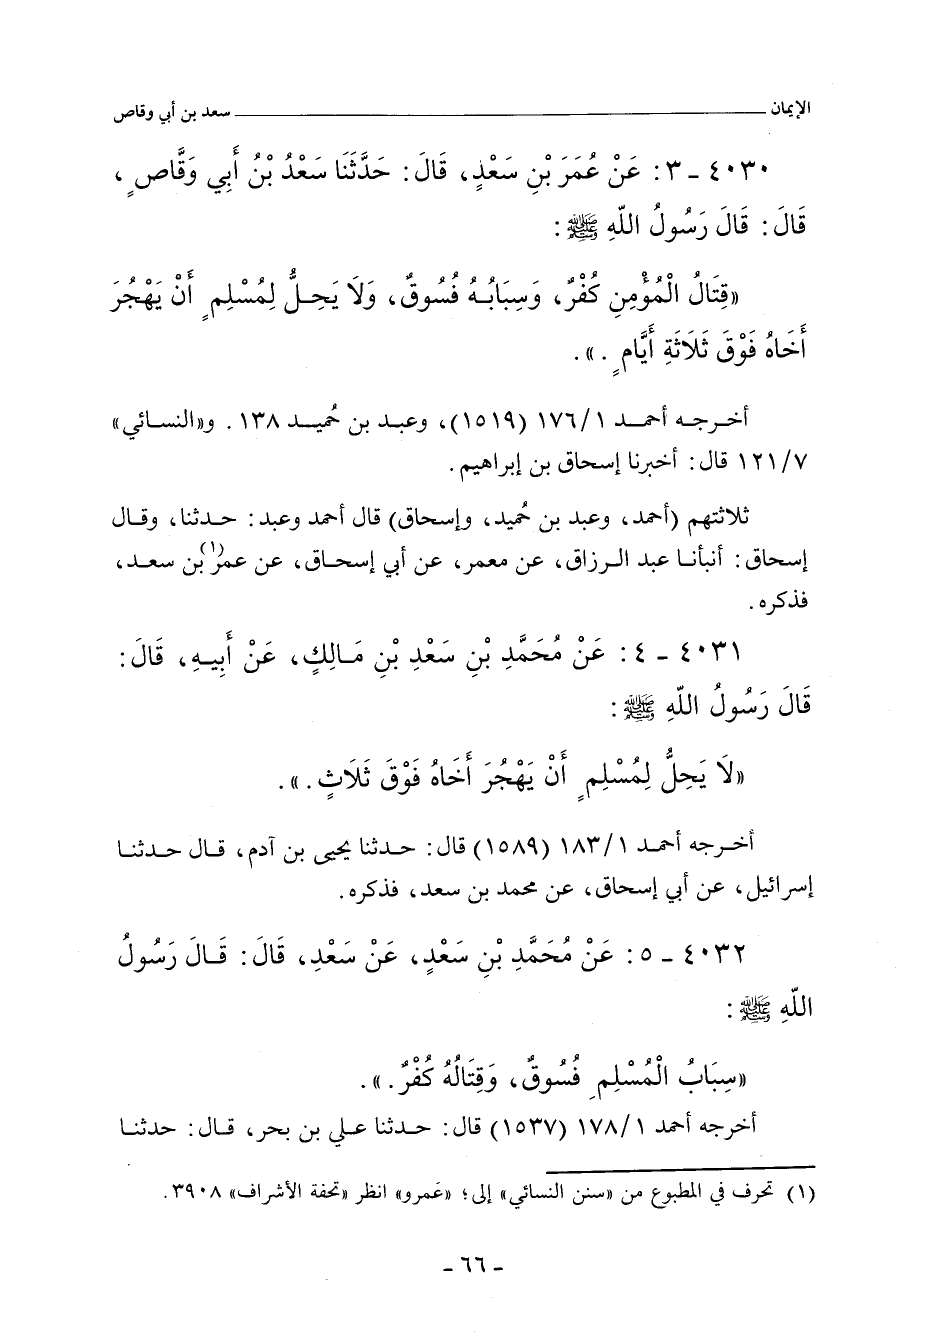 الإيمان ــــــــــ سعد بن أبي وقاص
٤٠٣٠ ـ ٣: عَنْ عُمَرَ بْنِ سَعْدٍ، قَالَ: حَدَّثَنَا سَعْدُ بْنُ أَبِي وَقَّاصٍ،
قَالَ: قَالَ رَسُولُ اللّهِ ﷺ:
«قِتَالُ الْمُؤْمِنِ كُفْرٌ، وَسِبَابُهُ فُسُوقٌ، وَلَا يَحِلُّ لِمُسْلِمٍ أَنْ يَهْجُرَ
أَخَاهُ فَوْقَ ثَلَاثَةِ أَيَّامٍ.».
أخرجه أحمد ١/١٧٦ (١٥١٩)، وعبد بن حُميد ١٣٨. و«النسائي»
٧/١٢١ قال: أخبرنا إسحاق بن إبراهيم.
ثلاثتهم (أحمد، وعبد بن حُميد، وإسحاق) قال أحمد وعبد: حدثنا، وقال
إسحاق: أنبأنا عبد الرزاق، عن معمر، عن أبي إسحاق، عن عمر(١) بن سعد،
فذكره.
٤٠٣١ ـ ٤: عَنْ مُحَمَّدِ بْنِ سَعْدِ بْنِ مَالِكٍ، عَنْ أَبِيهِ، قَالَ:
قَالَ رَسُولُ اللّهِ ﷺ:
«لَا يَحِلُّ لِمُسْلِمٍ أَنْ يَهْجُرَ أَخَاهُ فَوْقَ ثَلَاثٍ.».
أخرجه أحمد ١/١٨٣ (١٥٨٩) قال: حدثنا يحيى بن آدم، قال حدثنا
إسرائيل، عن أبي إسحاق، عن محمد بن سعد، فذكره.
٤٠٣٢ ـ ٥: عَنْ مُحَمَّدِ بْنِ سَعْدٍ، عَنْ سَعْدِ، قَالَ: قَالَ رَسُولُ
اللّهِ ﷺ:
«سِبَابُ الْمُسْلِمِ فُسُوقٌ، وَقِتَالُهُ كُفْرٌ.».
أخرجه أحمد ١/١٧٨ (١٥٣٧) قال: حدثنا علي بن بحر، قال: حدثنا
(١) تحرف في المطبوع من «سنن النسائي» إلى؛ «عَمرو» انظر «تحفة الأشراف» ٣٩٠٨.
ـ ٦٦ ـ